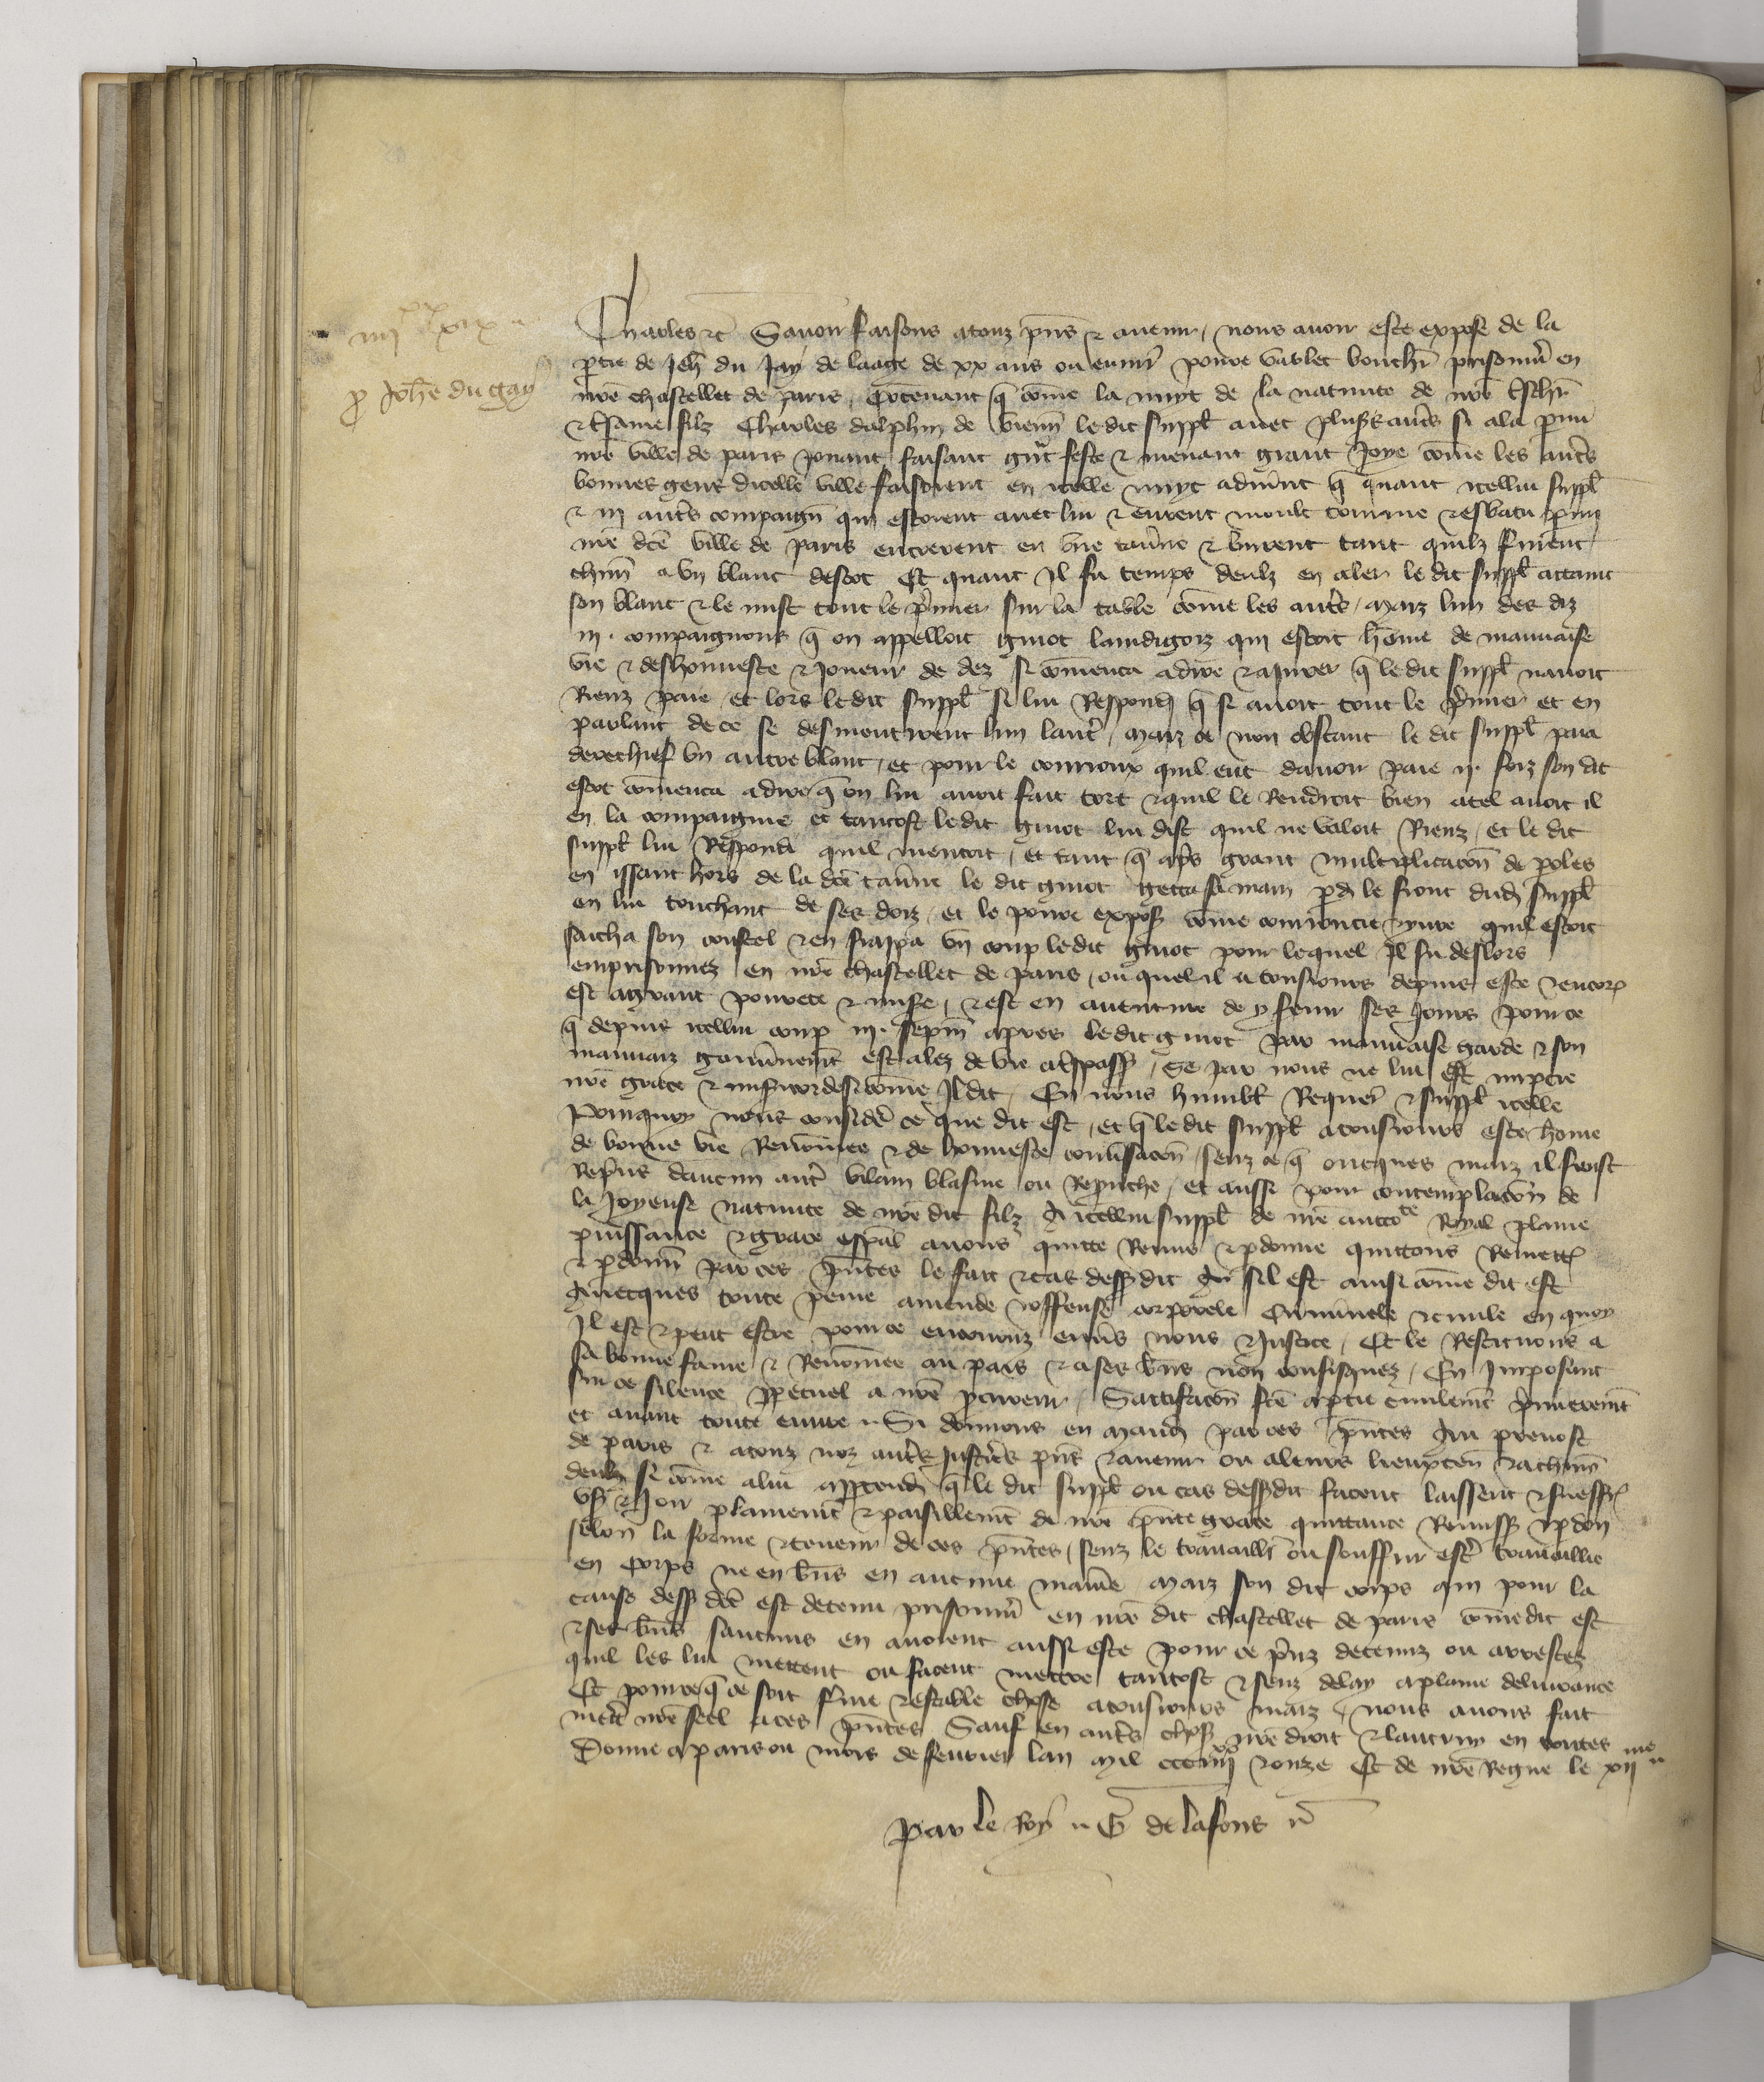 pro Johanne du gay
Charles etc Savoir faisons a touz pns et avenir / nous avoir este expose de la
ptie de Jeh du Jay de laage de xx ans ou environ povre varlet bouchier prisonnier en
nre chastellet de paris, Contenant q come la nuyt de la nativite de nre tschr
et tsame filz Charles dalphin de vienn le dit suppl avec plusrs autrs si ala pmi
nre ville de paris Jouant faisant gnt feste et menant grant Joye come les autrs
bonnes gens dicelle ville faisoient en icelle nuyt advint q quant icellui suppl
et iij autrs compaign qui estoient avec lui et eurent moult tourne et esbatu pmi
nre dce ville de paris entrerent en une taverne et burent tant quilz furent
chun a un blanc descot Et quant Il fu temps deulz en aler le dit suppl attaint
son blanc et le mist tout le pmier sur la table come les autrs / maiz lun des diz
iij. compaignons q on appelloit guiot laindigoiz qui estoit home de mauvaise
vie et deshonneste et Joueur de dez si comenca a dire et a Jurer q le dit suppl navoit
Rienz paie et lors le dit suppl si lui Respondi q si avoit tout le pmier et en
parlant de ce se desmentirent lun lautr / maiz ce non obstant le dit suppl paia
derechief un autre blanc / et pour le courroux quil eut davoir paie ij. foiz son dit
escot comenca a dire q on lui avoit fait tort et quil le Rendroit bien a tel avoit il
en la compaignie et tantost le dit guiot lui dist quil ne valoit Rienz / et le dit
suppl lui Respondi quil mentoit / et tant q aps grant multiplicacon de poles
en issant hors de la dce taverne le dit guiot getta sa main pdr le front dud suppl
en lui touchant de ses doiz / et le povre expos come courroucie et yvre quil estoit
sacha son coustel et en frappa un coup le dit guiot pour lequel Il fu deslors
emprisonnez en nre chastellet de paris / ou quel il a tousjours depuis este et encores
est a grant povrete et misere / et est en aventure de y fenir ses Jours pour ce
q depuis icellui coup iij. sepm apres le dit guiot par mauvaise garde et son
mauvaiz gouvnement est alez de vie a trspass / Se par nous ne lui est impctie
nre grace et misericorde si come Il dit / En nous humbl Requer et suppl icelle
Pourquoy nous considr ce que dit est / et q le dit suppl a tousjours este home
de bonne vie Renomee et de honneste conversacon / senz ce q oncques maiz il feust
Repris daucun autr vilain blasme ou Reprouche / et aussi pour contemplacon de
la Joyeuse nativite de nre dit filz A icellui suppl de nre auctote Royal plaine
puissance et grace especial avons quitte Remis et pdonne quittons Remettons
et pdonn par ces pntes le fait et cas dessusdit Ou sil est ainsi come dit est
Avecques toute peine amende et offense corporele Criminele et civile en quoy
Il est et peut estre pour ce encouruz envers nous et Justice / Et le Restituons a
sa bonne fame et Renomee au pais et a ses bns non confisquez / En Imposant
sur ce silence ppetuel a nre pcureur / Satisfacon fce a ptie civilement pmierement
et avant toute euvre. Si donnons en mandemt par ces pntes Au prevost
de paris et a touz noz autrs Justicrs pns et avenir ou a leurs lieuxten et a chun
deulz si come a lui appartendra q le dit suppl ou cas dessusdit facent laissent et sueffrent
user et Jouir plainement et paisiblement de nre pnte grace quittance Remiss et pdon
selon la forme et teneur de ces pntes / senz le travaillr ou souffrir estr travaillie
en Corps ne en bns en aucune maniere / maiz son dit corps qui pour la
cause dessusdce est detenu prisonnier en nre dit chastellet de paris come dit est
et ses bns saucuns en avoient aussi este pour ce prins detenuz ou arrestez
quil les lui mettent ou facent mettre tantost et senz delay a plaine delivrance
Et pour ce q ce soit ferme et estable chose a tousjours maiz / nous avons fait
mettr nre seel a ces pntes. Sauf en autrs choses nre droit et lautruy en toutes
Donne a paris ou mois de fevrier lan mil ccc iiij xx et onze Et de nre Regne le xijme
par le Roy. G de la fons